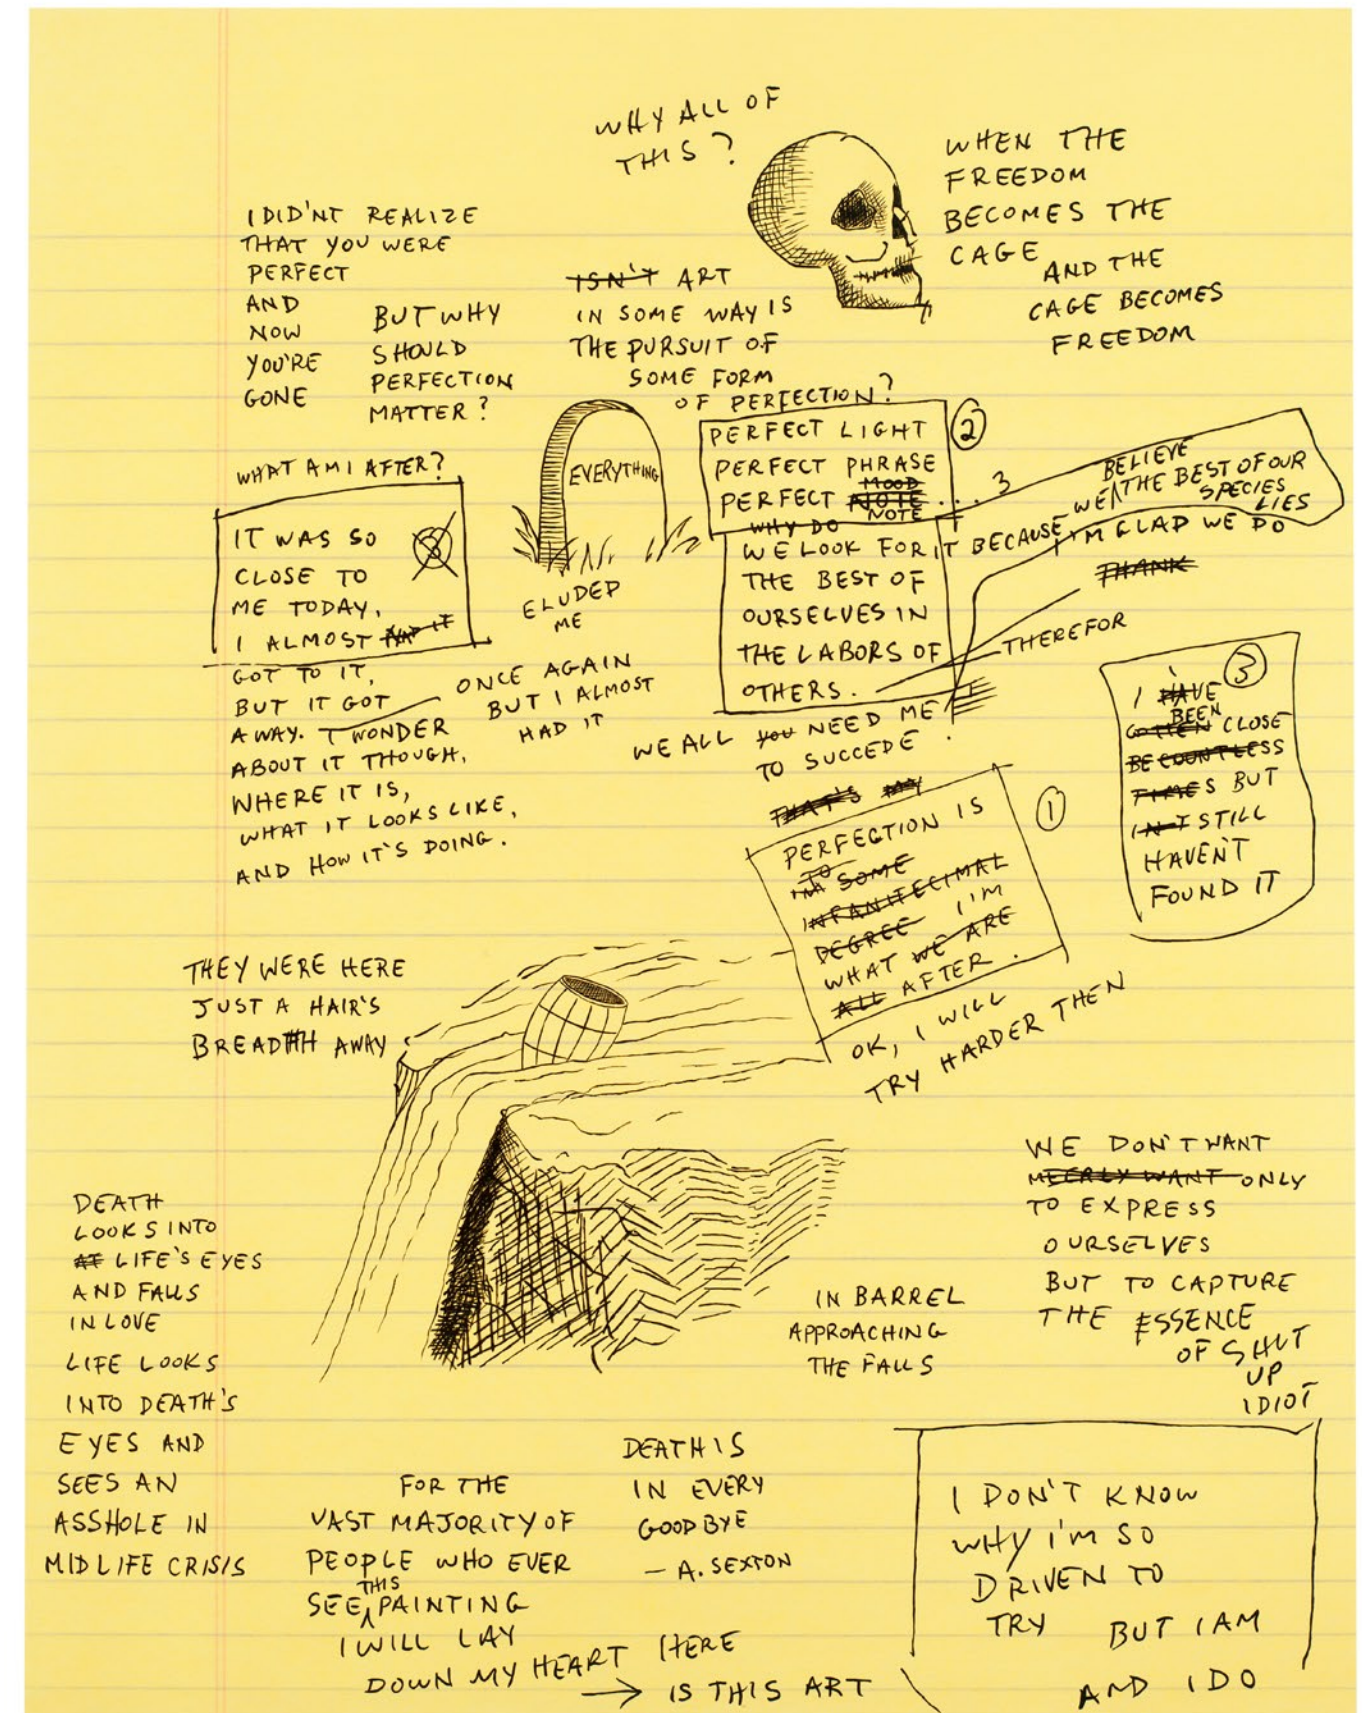 WHY ALL OF
THIS?
WHEN THE
FREEDOM
BECOMES THE
CAGE
AND THE
CAGE BECOMES
FREEDOM
I DID'NT REALIZE
THAT YOU WERE
PERFECT
AND
NOW
YOU'RE
GONE
BUT WHY
SHOULD
PERFECTION
MATTER?
ISN'T ART
IN SOME WAY IS
THE PURSUIT OF
SOME FORM
OF PERFECTION?
WHAT AM I AFTER?
IT WAS SO
CLOSE TO
ME TODAY,
I ALMOST HAD IT
GOT TO IT,
BUT IT GOT
AWAY. I WONDER
ABOUT IT THOUGH,
WHERE IT IS,
WHAT IT LOOKS LIKE,
AND HOW IT'S DOING.
EVERYTHING
ELUDED
ME
ONCE AGAIN
BUT I ALMOST
HAD IT
2
PERFECT LIGHT
PERFECT PHRASE
MOOD
PERFECT NOTE...
NOTE
3
WHY DO
WE LOOK FOR IT BECAUSE
THE BEST OF
OURSELVES IN
THE LABORS OF
OTHERS.
BELIEVE
WE THE BEST OF OUR
SPECIES
LIES
I'M GLAD WE DO
THANK
THEREFOR
WE ALL YOU NEED ME
TO SUCCEDE.
THAT'S MY
3
I HAVE
BEEN
GOTTEN CLOSE
BE COUNTLESS
TIMES BUT
STILL
HAVEN'T
FOUND IT
1
PERFECTION IS
TO
SOME
INFANITECIMAL
DEGREE I'M
WHAT WE ARE
ALL AFTER.
OK, I WILL
TRY HARDER THEN
THEY WERE HERE
JUST A HAIR'S
BREADTH AWAY
DEATH
LOOKS INTO
AT LIFE'S EYES
AND FALLS
IN LOVE
LIFE LOOKS
INTO DEATH'S
EYES AND
SEES AN
ASSHOLE IN
MIDLIFE CRISIS
IN BARREL
APPROACHING
THE FALLS
WE DON'T WANT
MEERLY WANT ONLY
TO EXPRESS
OURSELVES
BUT TO CAPTURE
THE ESSENCE
OF SHUT
UP
IDIOT
FOR THE
VAST MAJORITY OF
PEOPLE WHO EVER
THIS
SEE PAINTING
I WILL LAY
DOWN MY HEART HERE
→ IS THIS ART
DEATH IS
IN EVERY
GOODBYE
— A. SEXTON
I DON'T KNOW
WHY I'M SO
DRIVEN TO
TRY BUT I AM
AND I DO